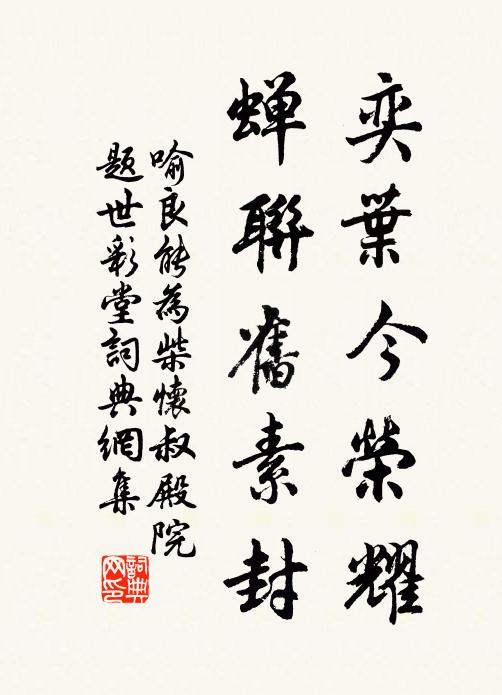 奕葉今榮耀
蟬聯舊素封
喻良能為柴懷叔殿院
題世彩堂詞典網集
詞典网印